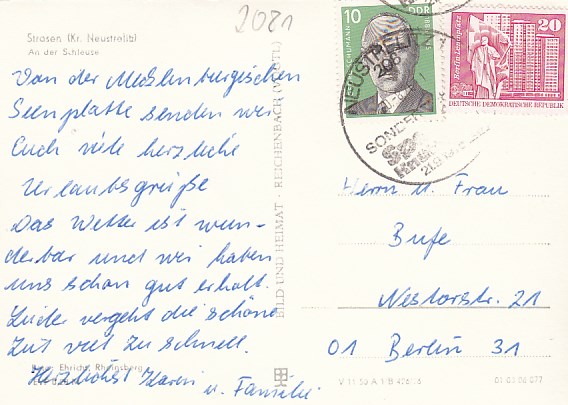 2081
Strasen (Kr. Neustrelitz)
An der Schleuse
Von der Mecklenburgischen
Seenplatte senden wir
Euch viele herzliche
Urlaubsgrüße
Das Wetter ist wun-
derbar und wir haben
uns schon gut erholt.
Leider vergeht die schöne
Zeit viel zu schnell.
Herzlichst Karin
u. Familie
Ehricht, Rheinsberg
BILD UND HEIMAT · REICHENBACH (VOGTL)
10
DDR
SCHUMANN
20
Berlin-Leninplatz
DEUTSCHE DEMOKRATISCHE REPUBLIK
NEUSTRELITZ 1
208
SONDER
Herrn u. Frau
Bufe
Nestorstr. 21
01 Berlin 31
V 11 50 A 1/B
01 03 08 077